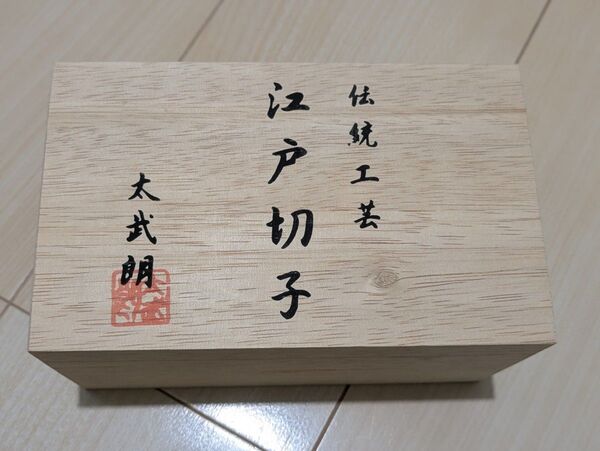 伝統工芸
江戸切子
太武朗